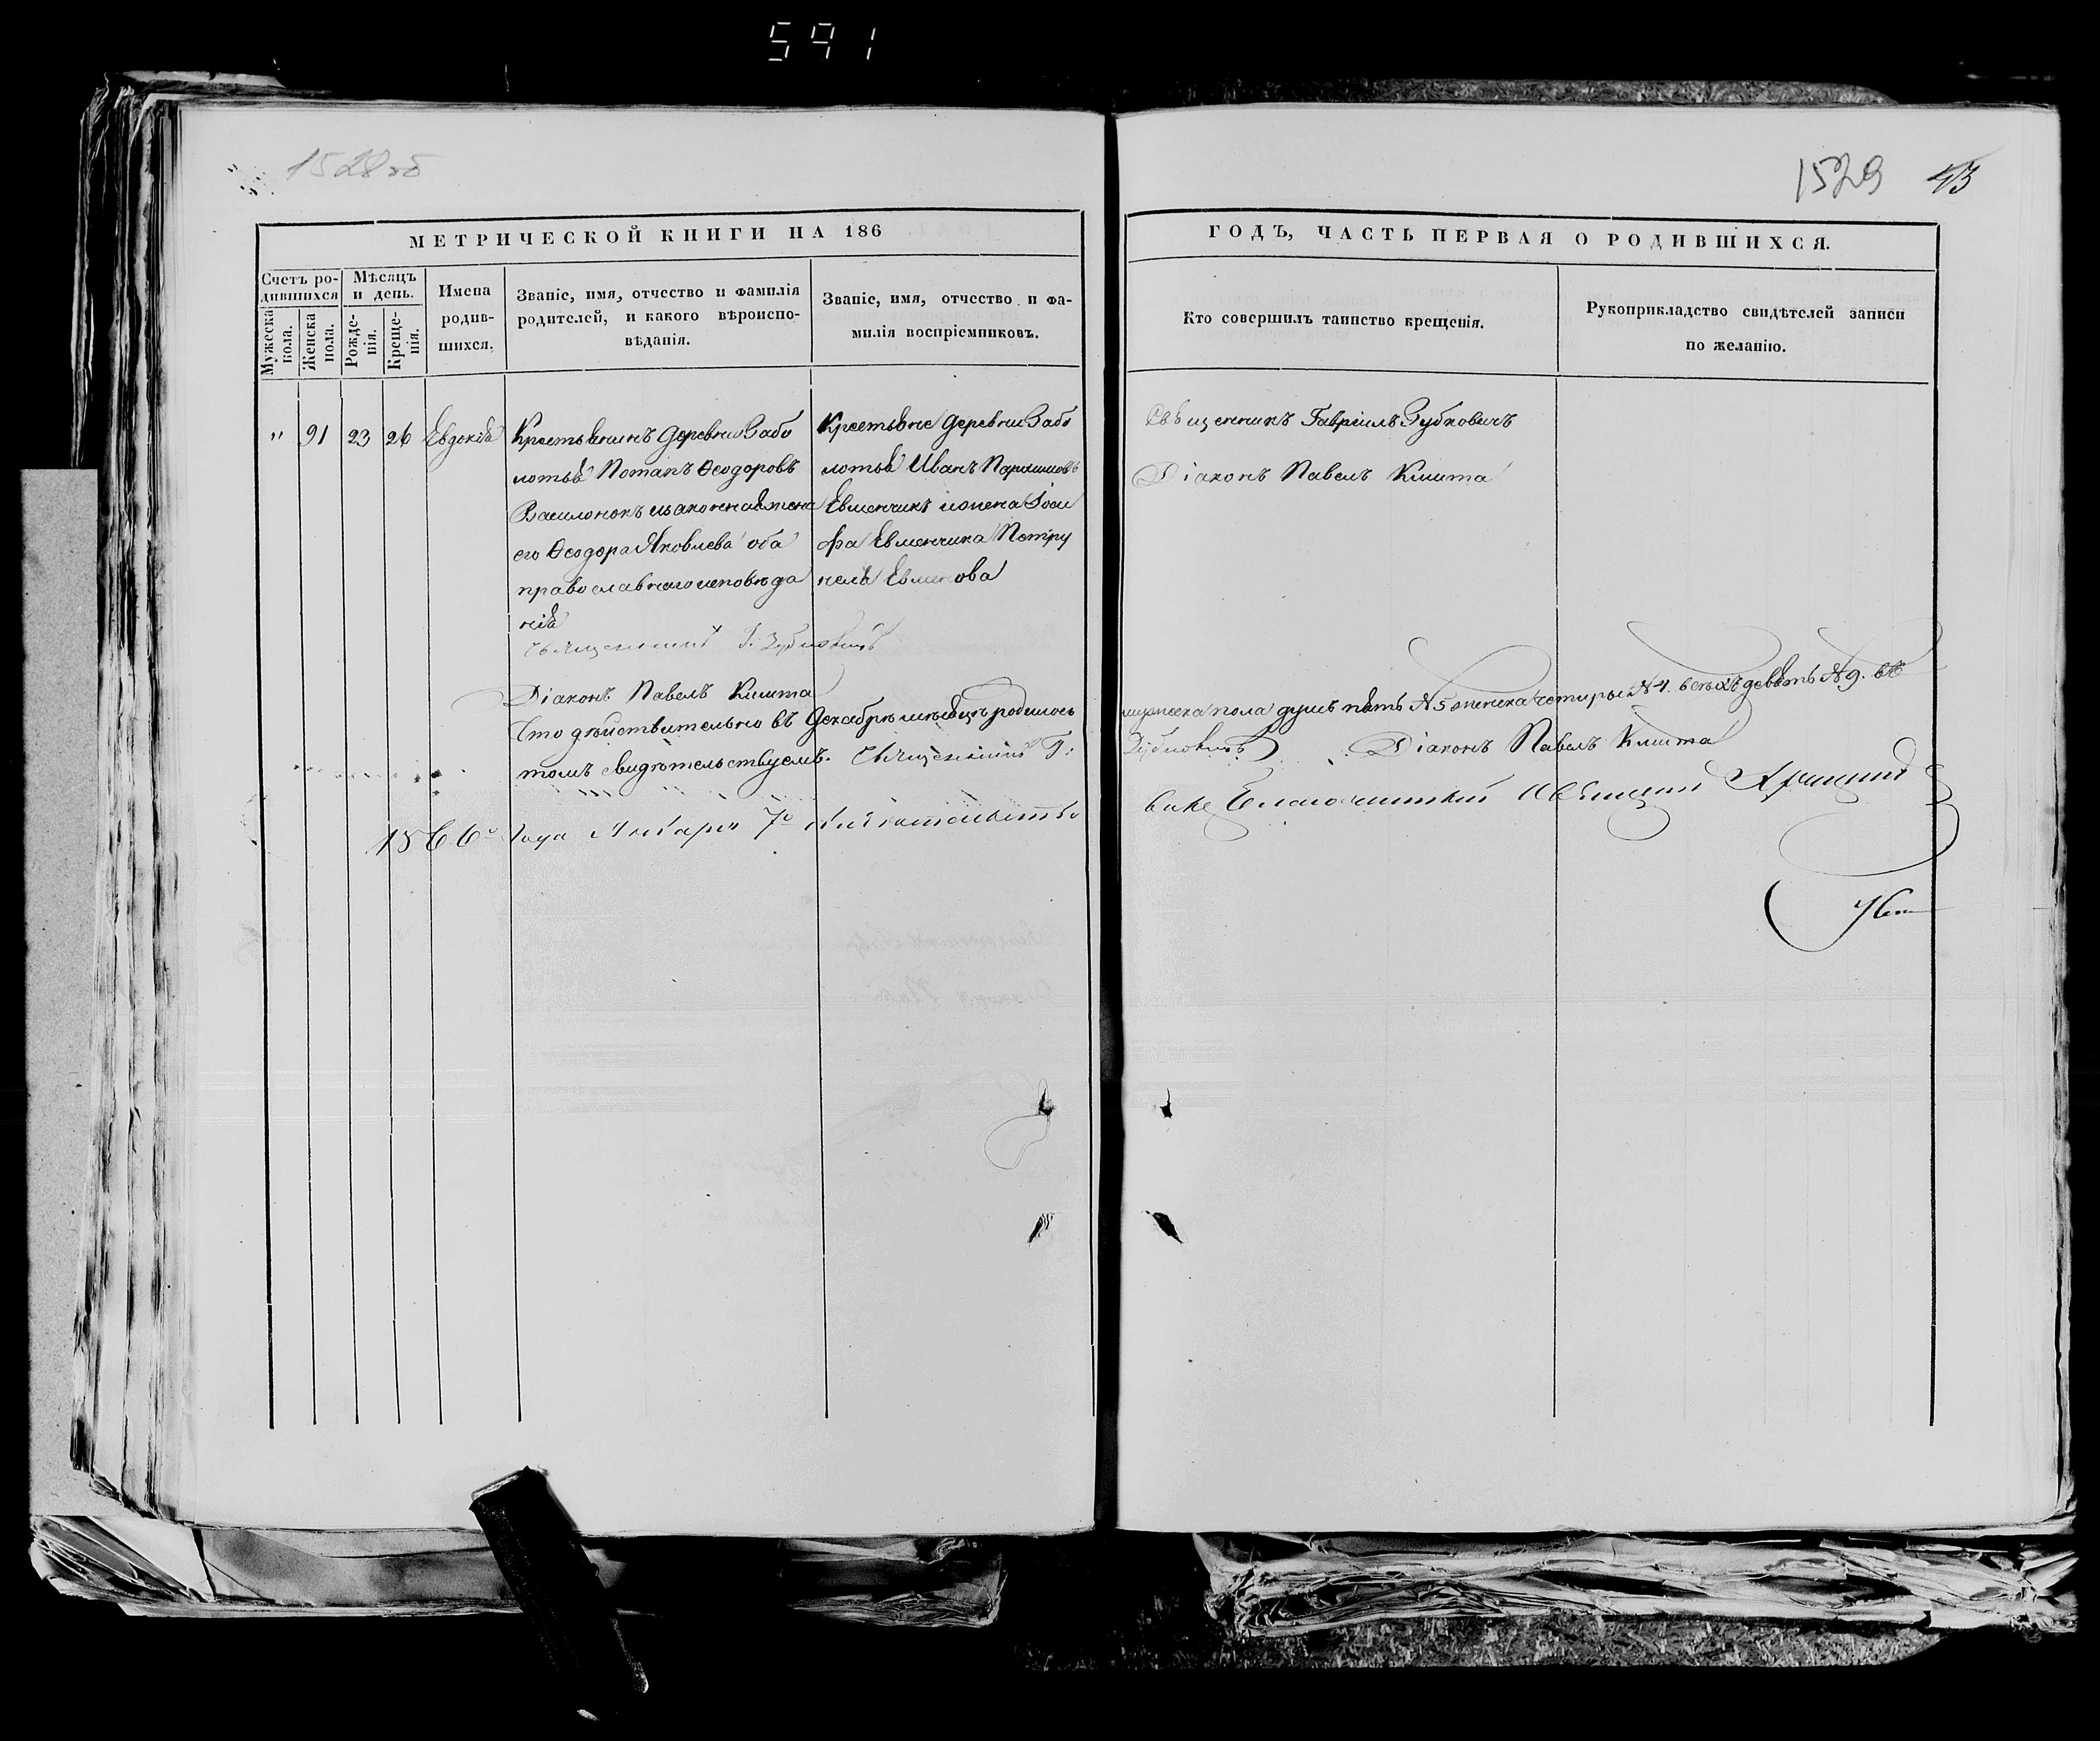 591
1528об
1529 43
МЕТРИЧЕСКОЙ КНИГИ НА 186
ГОДЪ, ЧАСТЬ ПЕРВАЯ О РОДИВШИХСЯ.
Счетъ ро-
дившихся
Мужеска
пола.
Женска
пола.
Мѣсяцъ
и день.
Рожде-
нія.
Креще-
нія.
Имена
родив-
шихся.
Званіе, имя, отчество и фамилія
родителей, и какого вѣроиспо-
вѣданія.
Званіе, имя, отчество и фа-
милія воспріемниковъ.
Кто совершилъ таинство крещенія.
Рукоприкладство свидѣтелей записи
по желанію.
" 91 23 26 Евдокія
Крестьянинъ деревни Забо
лотья Потапъ Ѳеодоровъ
Василонокъ изаконная жена
его Ѳеодора Яковлева оба
православнаго исповѣда
нія
Крестьяне деревни Забо
лотья Иванъ
Евменчикъ ижена Іоси
фа Евменчика Петру
неля Евменова
Священникъ Гавріилъ Зубковичъ
Діаконъ Павелъ Кмита
Священникъ Г. Зубковичъ
Діаконъ Павелъ Кмита
Что дѣйствительно въ Декабрѣ мѣсяцѣ родилось
мужеска пола душъ пять №5 аженска четыре №4. всѣхъ девять №9. въ
томъ свидѣтельствуемъ. Священникъ Г.
Зубковичъ Діаконъ Павелъ Кмита
1866 года Января 7